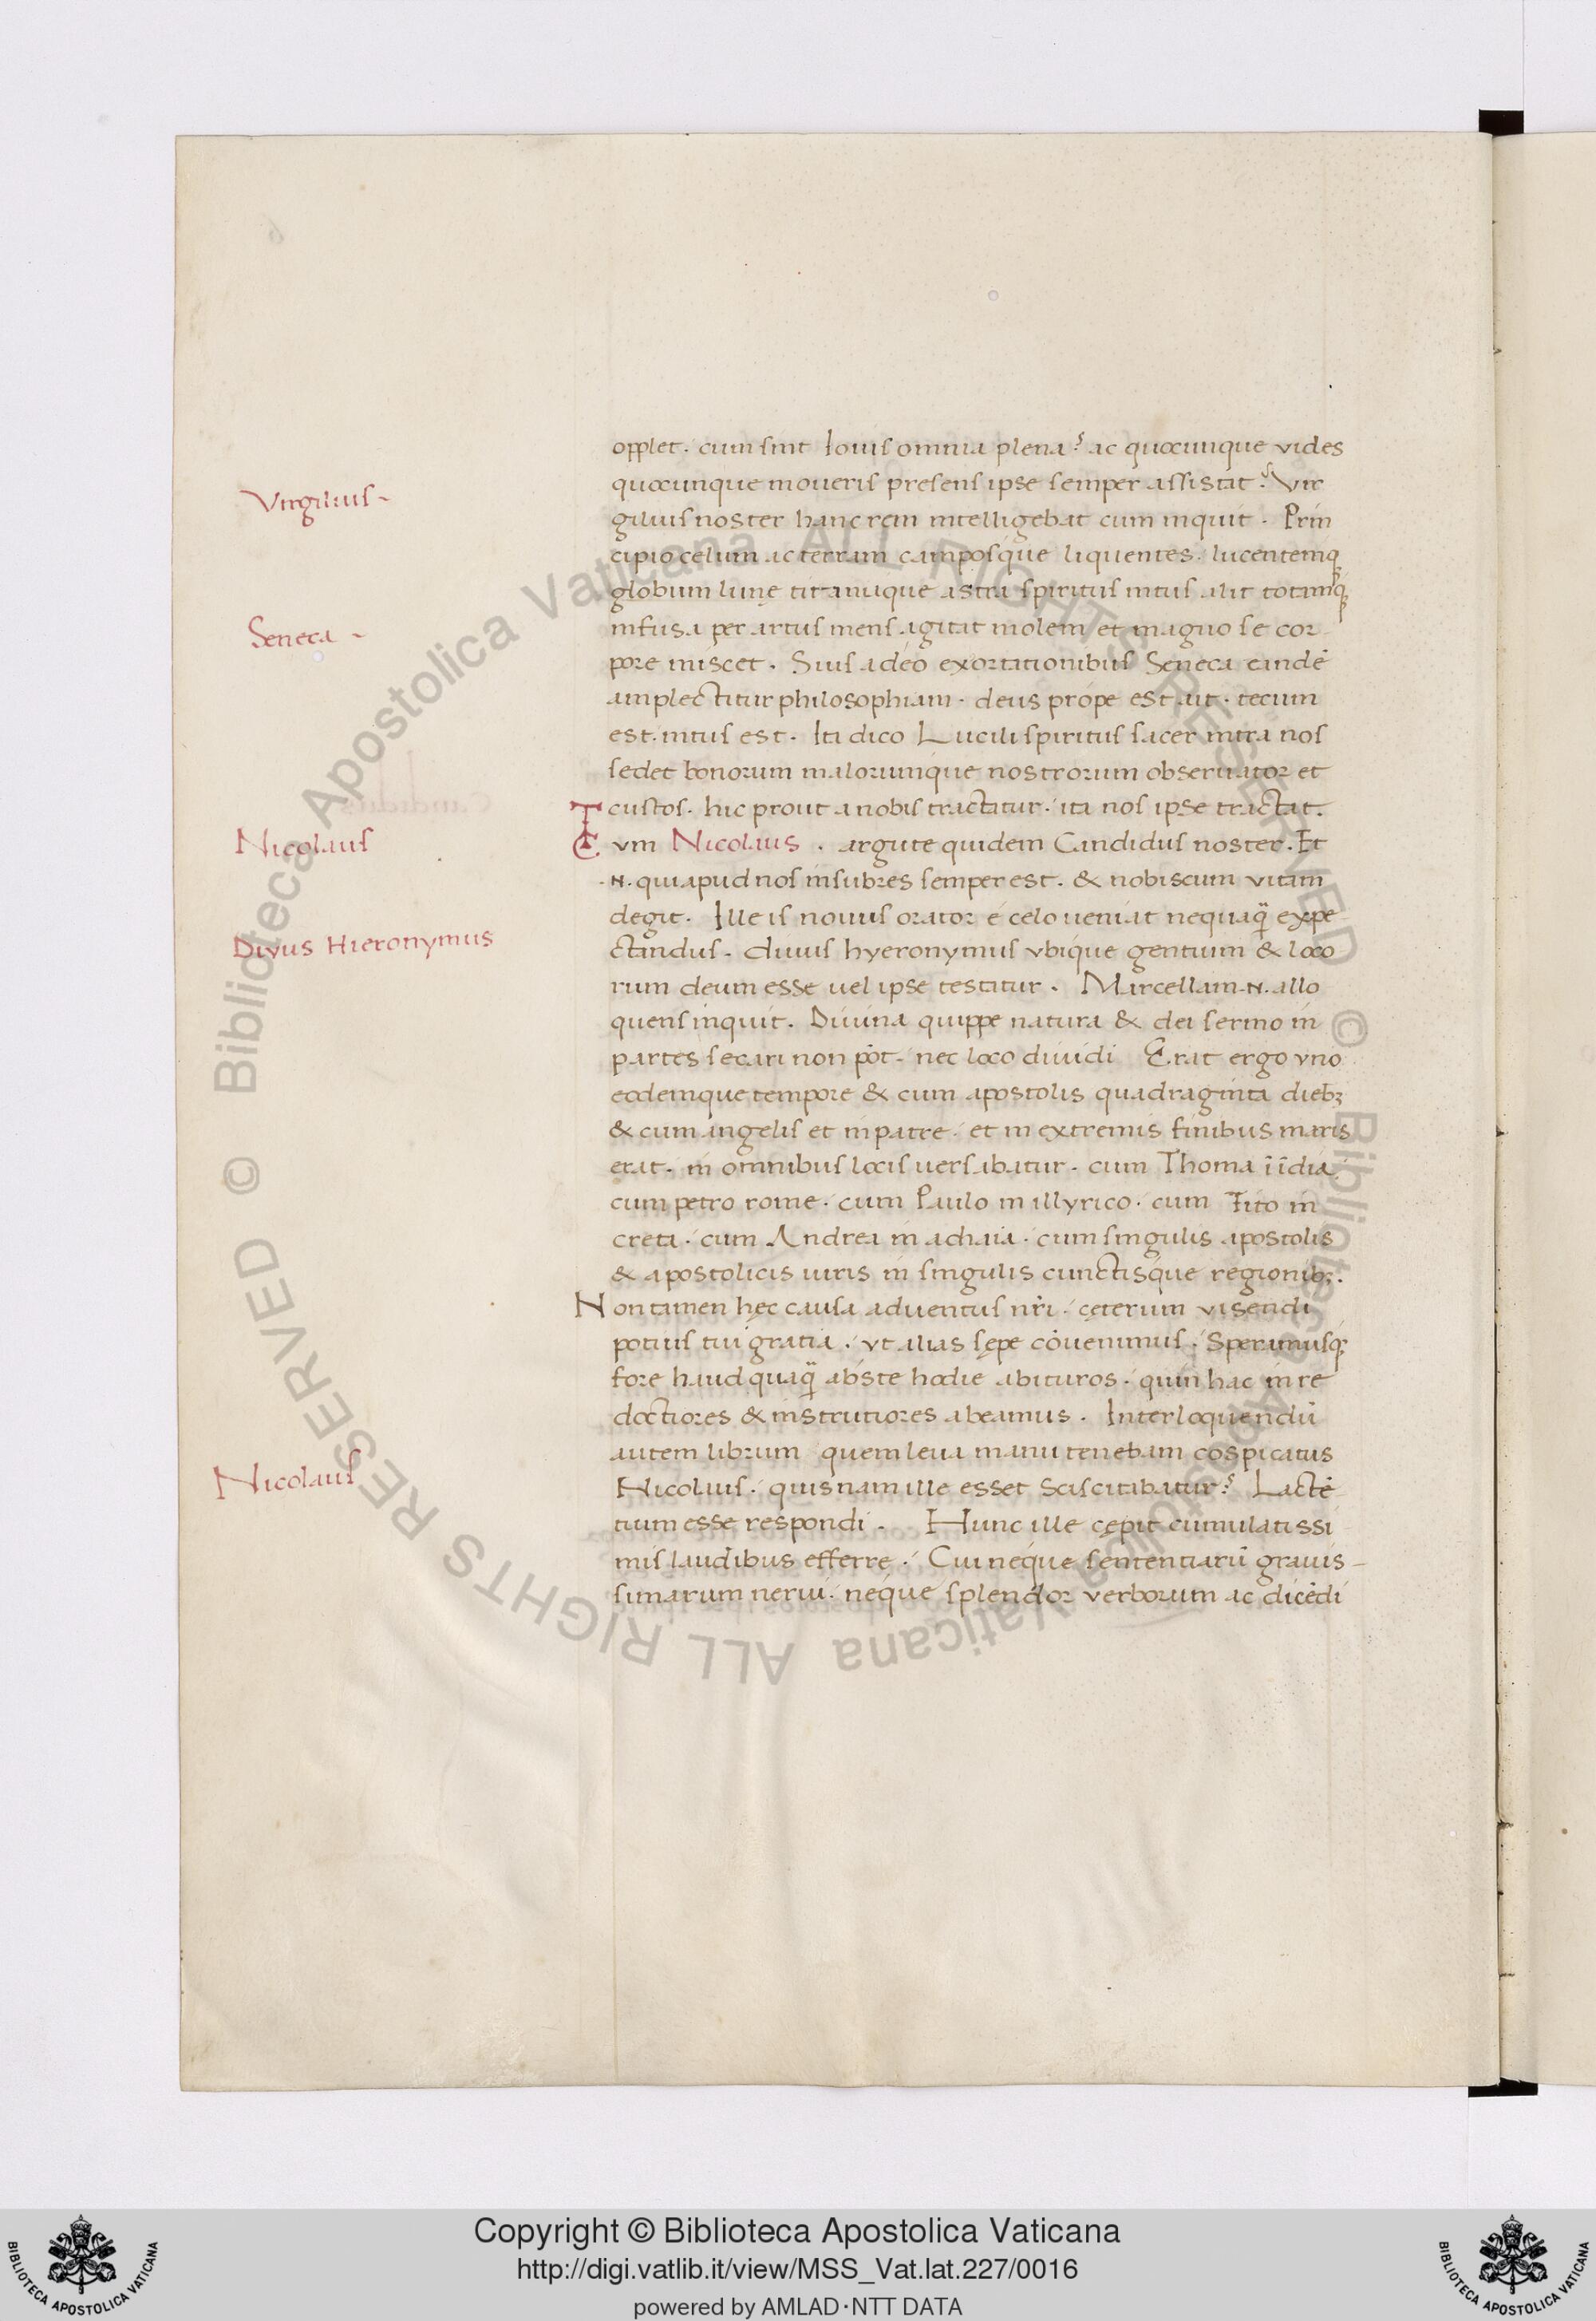 opplet. cum sint Iouis omnia plena? ac quocunque vides
quocunque moueris presens ipse semper assistat? Vir
Virgilius-
gilius noster hanc rem intelligebat cum inquit. Prin
cipio celum ac terram camposque liquentes. lucentemq
globum lunę titaniaque astra spiritus intus alit totamq
Seneca-
infusa per artus mens agitat molem et magno se cor-
pore miscet. Suis adeo exortationibus Seneca eandē
amplectitur philosophiam. deus prope est ait. tecum
est. intus est. Ita dico Lucili spiritus sacer intra nos
sedet bonorum malorumque nostrorum obseruator et
custos. hic prout a nobis tractatur. ita nos ipse tractat.
Nicolaus
Tum Nicolaus. argute quidem Candidus noster. Et
.N. qui apud nos insubres semper est. & nobiscum vitam
degit. Ille is nouus orator e celo ueniat nequaq̄ expe
Divus Hieronymus
ctandus. diuus hyeronymus vbique gentium & loco
rum deum esse uel ipse testatur. Marcellam .N. allo
quens inquit. Diuina quippe natura & dei sermo in
partes secari non pōt. nec loco diuidi Erat ergo vno
eodemque tempore & cum apostolis quadraginta dieb;
& cum angelis et in patre. et in extremis finibus maris
erat. in omnibus locis uersabatur. cum Thoma ī īdia.
cum petro rome. cum Paulo in illyrico. cum Tito in
creta. cum Andrea in achaia. cum singulis apostolis
& apostolicis uiris in singulis cunctisque regionib;.
Non tamen hęc causa aduentus nr̄i. cęterum visendi
potius tui gratia. vt alias sępe cōuenimus. Speramusq;
fore haud quaq̄ abs te hodie abituros. quin hac in re
doctiores & instrutiores abeamus. Interloquendū
autem librum quem leua manu tenebam cōspicatus
Nicolaus
Nicolaus. quis nam ille esset sciscitabatur? Lactē
tium esse respondi. Hunc ille cępit cumulatissi
mis laudibus efferre. Cui neque sententiarū grauis-
simarum nerui. neque splendor verborum ac dicēdi
© Biblioteca Apostolica Vaticana ALL RIGHTS RESERVED
© Biblioteca Apostolica Vaticana ALL RIGHTS RESERVED
Copyright © Biblioteca Apostolica Vaticana
http://digi.vatlib.it/view/MSS_Vat.lat.227/0016
powered by AMLAD·NTT DATA
BIBLIOTECA APOSTOLICA VATICANA
BIBLIOTECA APOSTOLICA VATICANA